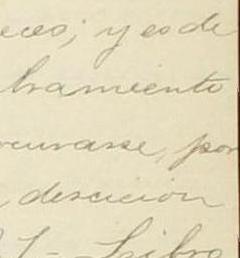 eces; y es de
bramiento
ocurarse, por
, descicion
- Libro